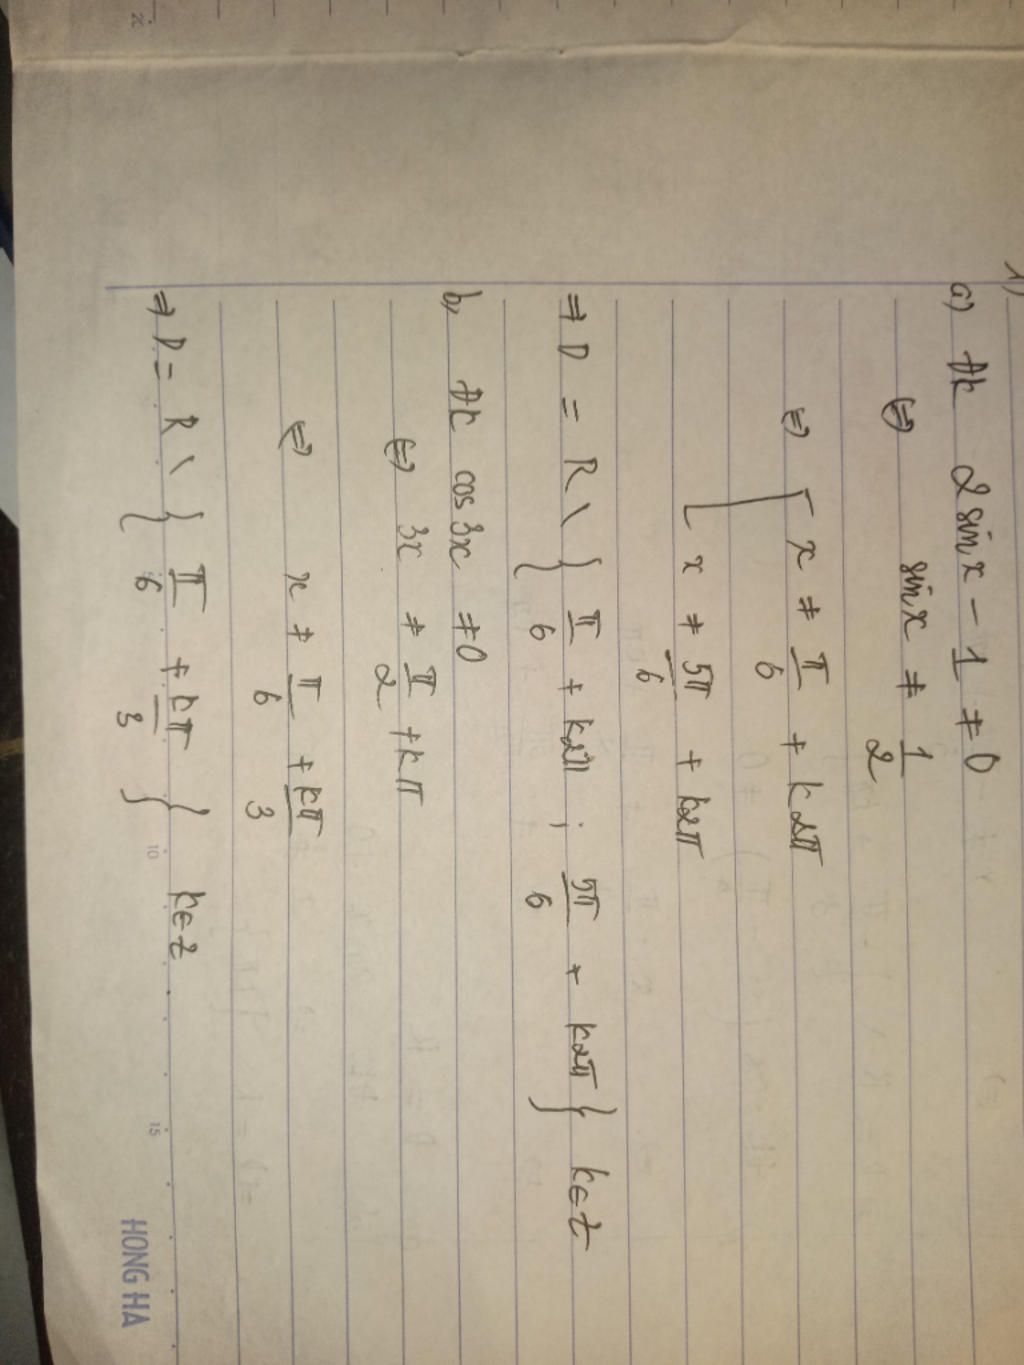 1)
a) ĐK 2 sin x - 1 ≠ 0
⇔ sin x ≠ 1/2
⇔ [ x ≠ π/6 + k2π
x ≠ 5π/6 + k2π
⇒ D = R \ { π/6 + k2π ; 5π/6 + k2π } k∈Z
b, ĐK cos 3x ≠ 0
⇔ 3x ≠ π/2 + kπ
⇔ x ≠ π/6 + kπ/3
⇒ D = R \ { π/6 + kπ/3 } k∈Z
10 15
HONG HA